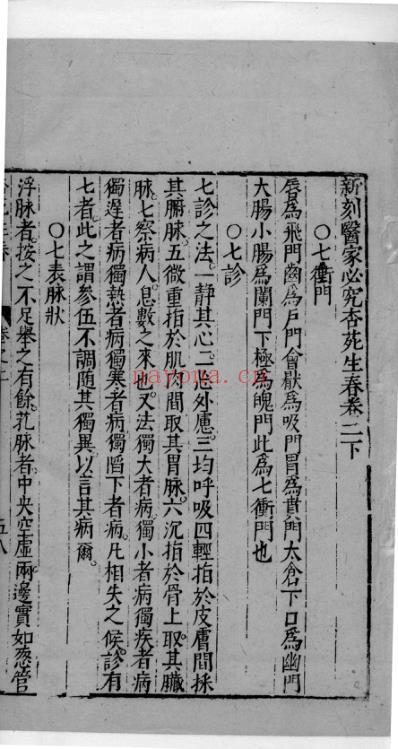 新刻醫家必究杏苑生春卷二下
○七衝門
唇為飛門齒為户門會厭為吸門胃為賁門太倉下口為幽門
大腸小腸為闌門下極為魄門此為七衝門也
○七診
七診之法一靜其心二忘外慮三均呼吸四輕指於皮膚間採
其腑脉五微重指於肌肉間取其胃脉六沉指於骨上取其臓
脉七察病人息數之來也又法獨大者病獨小者病獨疾者病
獨遲者病獨熱者病獨寒者病獨陷下者病凡相失之候診有
七者此之謂參伍不調隨其獨異以言其病爾
○七表脉狀
浮脉者按之不足舉之有餘芤脉者中央空虛兩邊實如葱管
nayona.cn